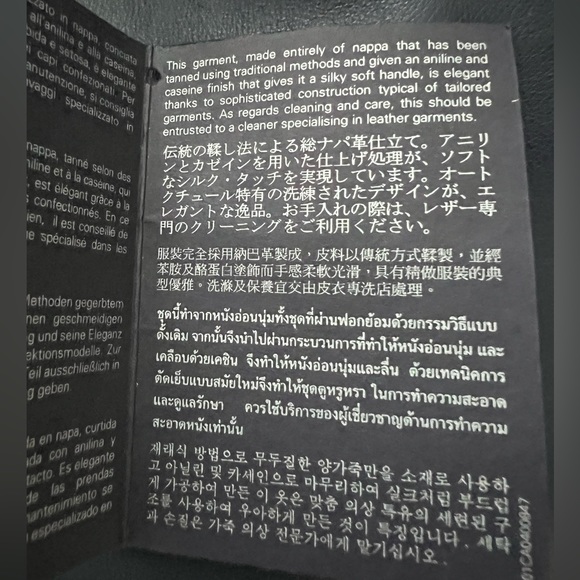 zzato in nappa, conciata
all'anilina e alla caseina,
bida e setosa, è elegante
i capi confezionati. Per
manutenzione, si consiglia
vaggi specializzato in
nappa, tanné selon des
niline et à la caséine, qui
, est élégant grâce à la
s confectionnés. En ce
ien, il est conseillé de
ne spécialisé dans les
Methoden gegerbtem
nen geschmeidigen
g und seine Eleganz
ektionsmodelle. Zur
Teil ausschließlich in
g geben.
da en napa, curtida
ada con anilina y
tacto. Es elegante
de las prendas
mantenimiento se
especializado en
This garment, made entirely of nappa that has been
tanned using traditional methods and given an aniline and
caseine finish that gives it a silky soft handle, is elegant
thanks to sophisticated construction typical of tailored
garments. As regards cleaning and care, this should be
entrusted to a cleaner specialising in leather garments.
伝統の鞣し法による総ナパ革仕立て。アニリ
ンとカゼインを用いた仕上げ処理が、ソフト
なシルク・タッチを実現しています。オート
クチュール特有の洗練されたデザインが、エ
レガントな逸品。お手入れの際は、レザー専
門のクリーニングをご利用ください。
服裝完全採用納巴革製成，皮料以傳統方式鞣製，並經
苯胺及酪蛋白塗飾而手感柔軟光滑，具有精做服裝的典
型優雅。洗滌及保養宜交由皮衣專洗店處理。
ชุดนี้ทำจากหนังอ่อนนุ่มทั้งชุดที่ผ่านฟอกย้อมด้วยกรรมวิธีแบบ
ดั้งเดิม จากนั้นจึงนำไปผ่านกระบวนการที่ทำให้หนังอ่อนนุ่ม และ
เคลือบด้วยเคซิน จึงทำให้หนังอ่อนนุ่มและลื่น ด้วยเทคนิคการ
ตัดเย็บแบบสมัยใหม่จึงทำให้ชุดดูหรูหรา ในการทำความสะอาด
และดูแลรักษา ควรใช้บริการของผู้เชี่ยวชาญด้านการทำความ
สะอาดหนังเท่านั้น
재래식 방법으로 무두질한 양가죽만을 소재로 사용하
고 아닐린 및 카세인으로 마무리하여 실크처럼 부드럽
게 가공하여 만든 이 옷은 맞춤 의상 특유의 세련된 구
조를 사용하여 우아하게 만든 것이 특징입니다. 세탁
과 손질은 가죽 의상 전문가에게 맡기십시오.